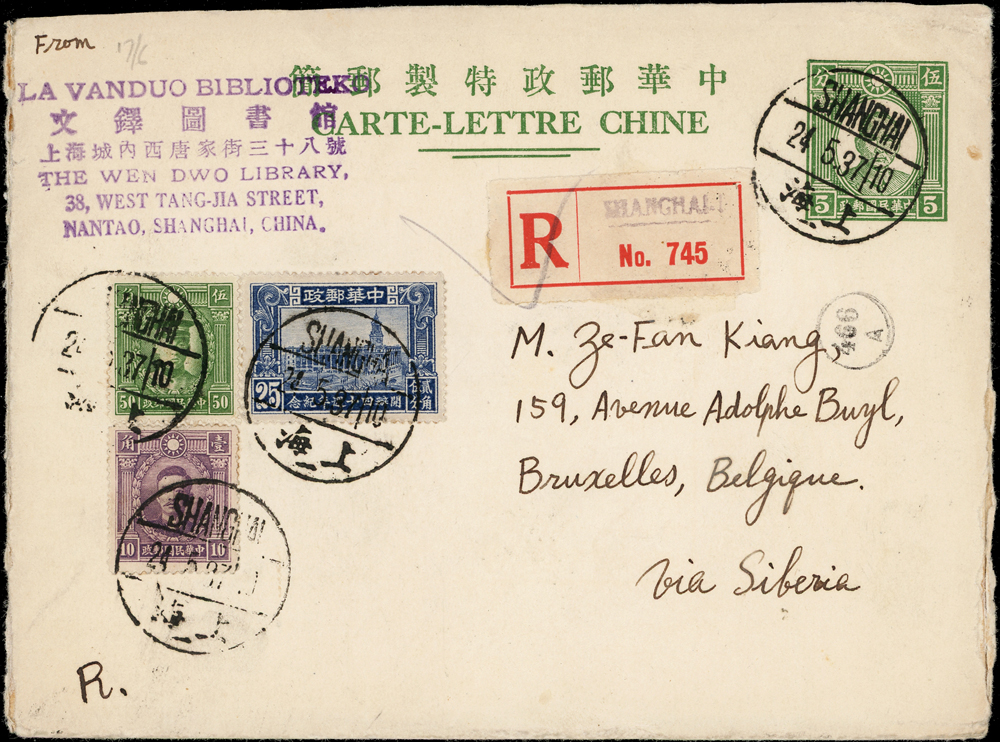 From 17/6
LA VANDUO BIBLIOTEKO
文鐸圖書館
上海城內西唐家街三十八號
THE WEN DWO LIBRARY,
38, WEST TANG-JIA STREET,
NANTAO, SHANGHAI, CHINA.
中華郵政特製郵簡
CARTE-LETTRE CHINE
分 伍
5 中華民國郵政 5
SHANGHAI
24 5.37/10
上海
R
SHANGHAI-1
No. 745
466
A
伍
50 中華民國郵政 50
NGHAI
2 .37/10
上
中華郵政
25
貳角
伍分
開辦四十週年紀念
SHANGHAI
24.5.37/10
上海
角 壹
10 中華民國郵政 10
SHANGHAI
24
上海
M. Ze-Fan Kiang,
159, Avenue Adolphe Buyl,
Bruxelles, Belgique.
via Siberia
R.